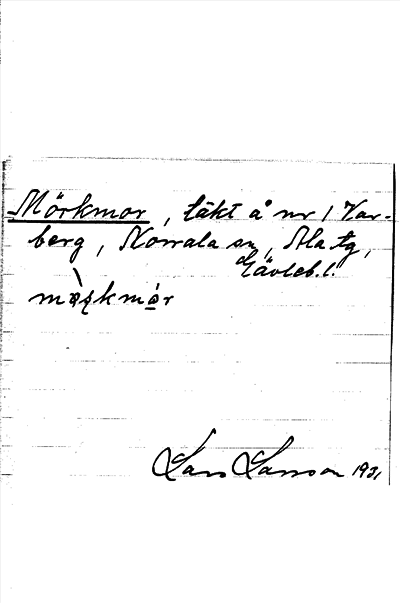 Mörkmor, täkt å nr 1 Var-
berg, Norrala sn, Ala tg,
Gävleb.l.
Lars Larsson 1931